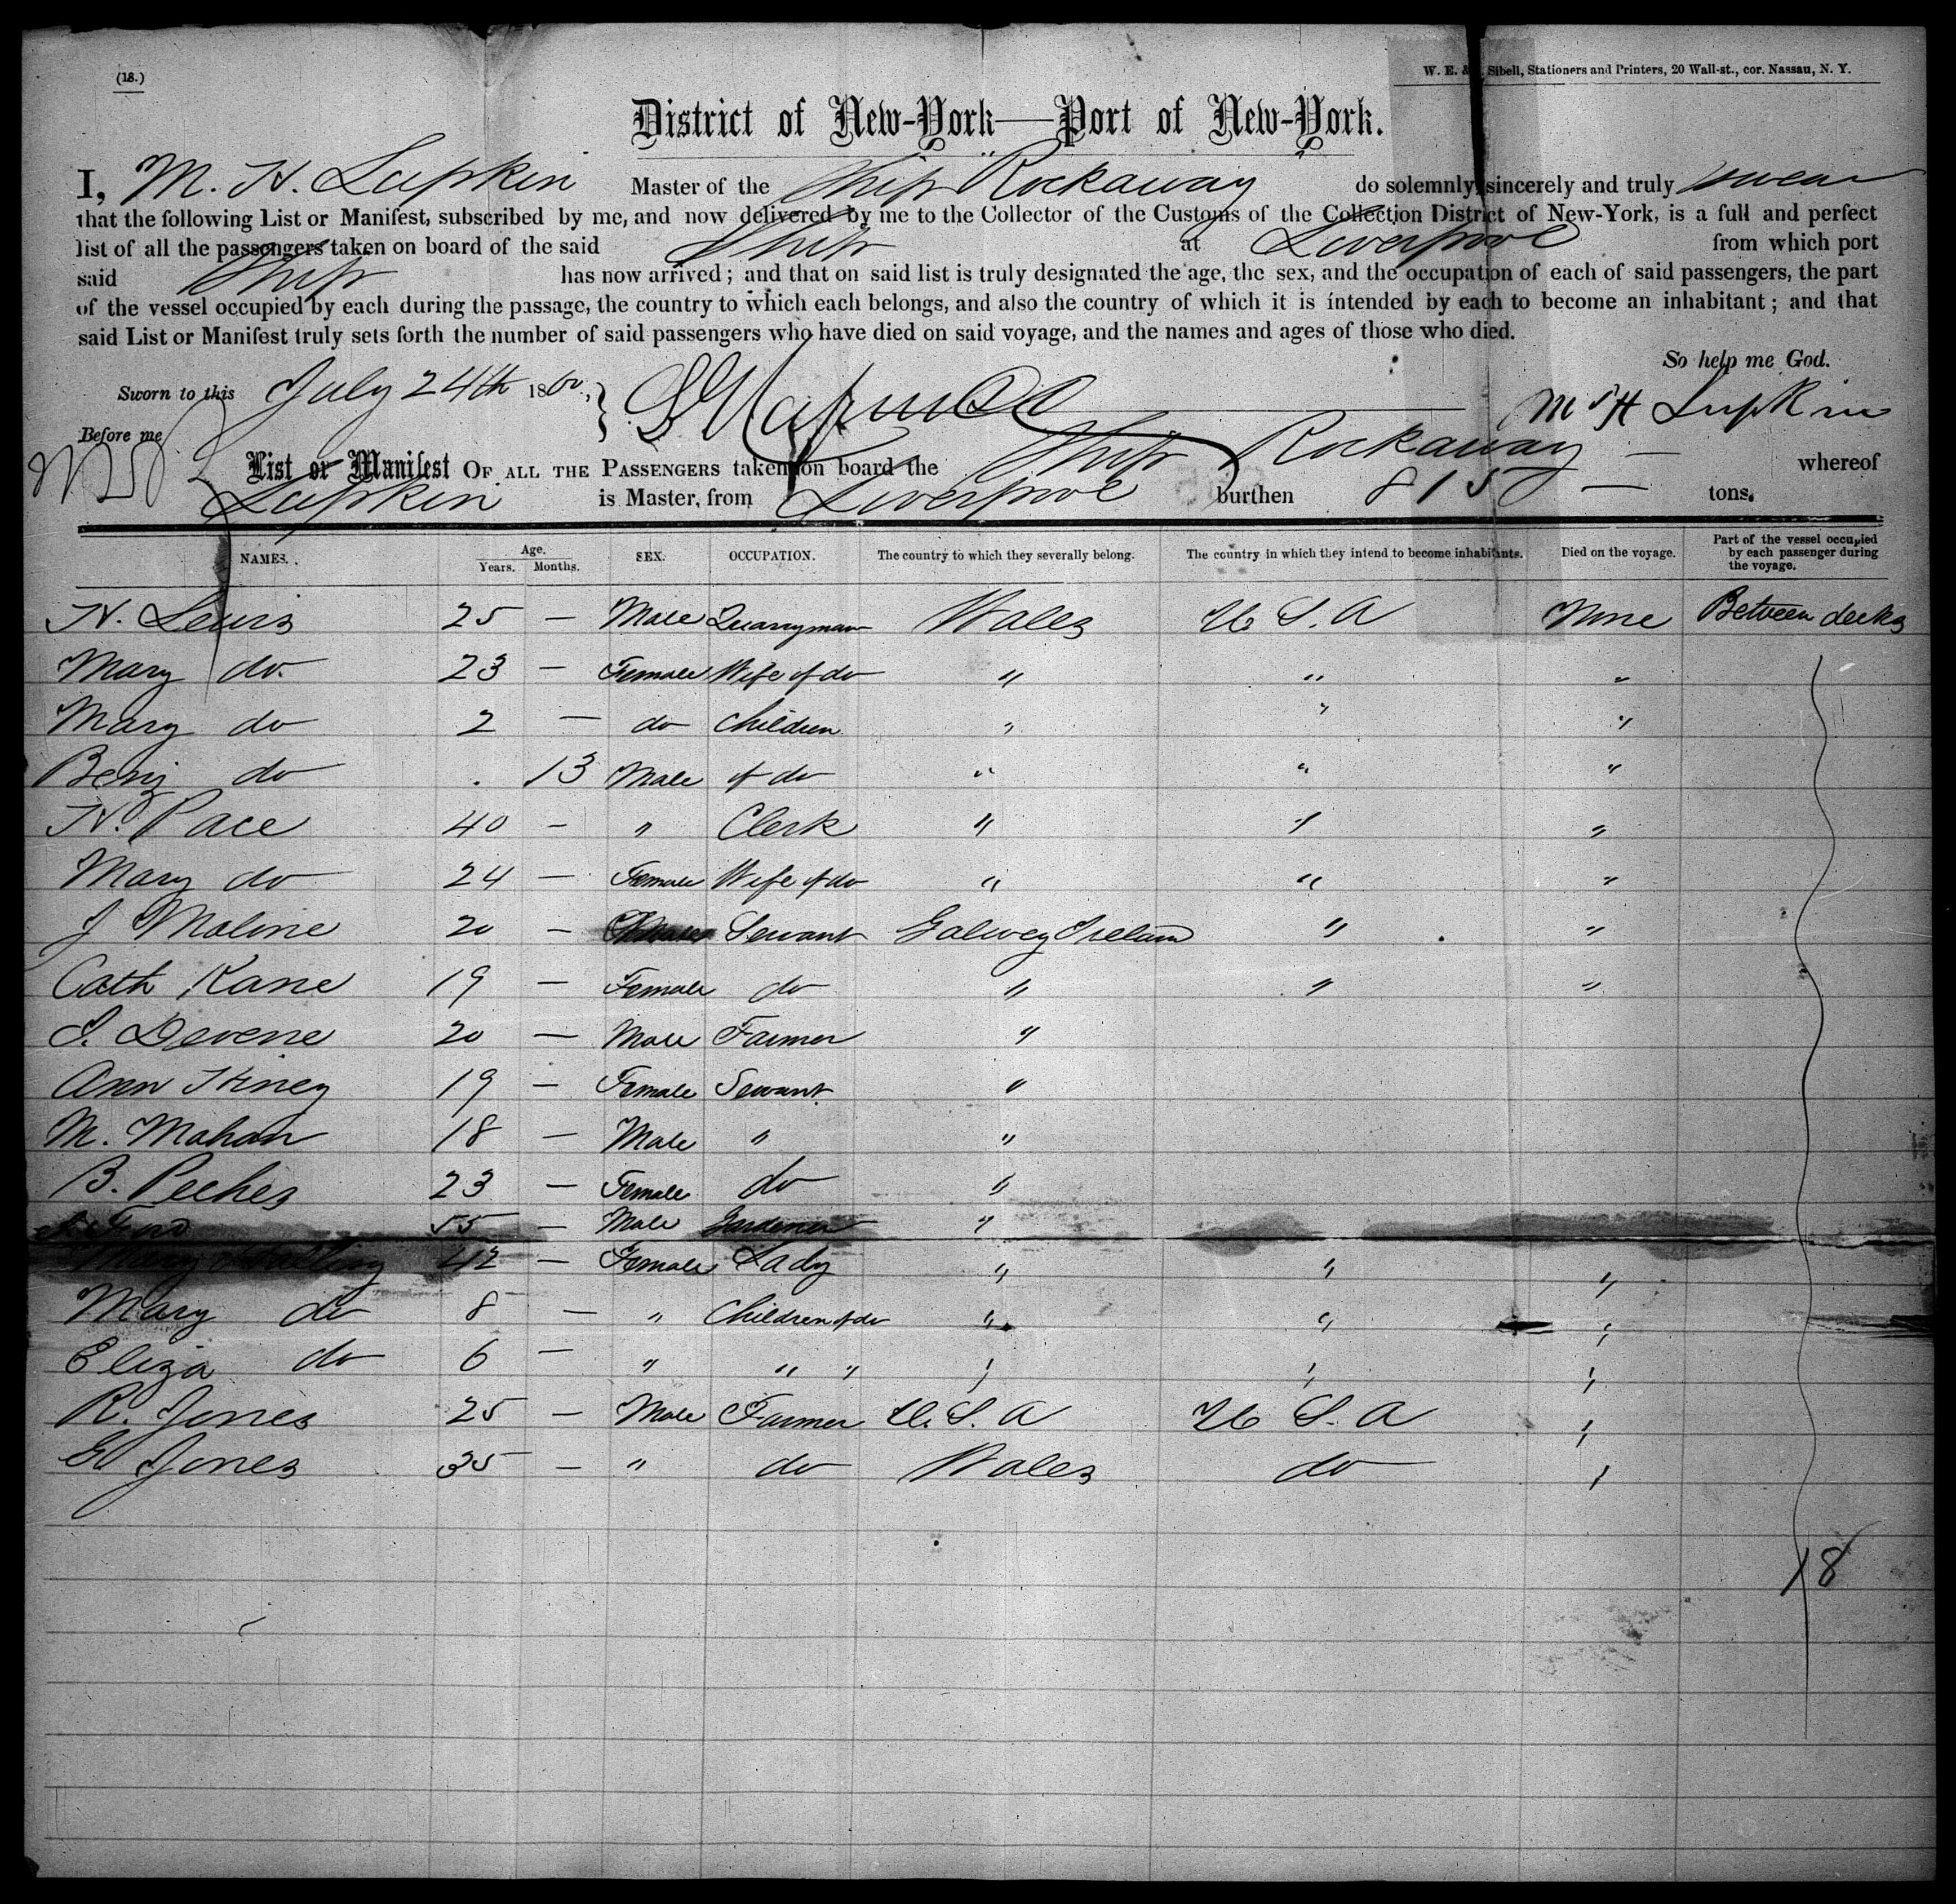 (18.)
W. E. & Sibell, Stationers and Printers, 20 Wall-st., cor. Nassau, N. Y.
District of New-York—Port of New-York.
I, M. H. Lupkin Master of the Ship Rockaway do solemnly, sincerely and truly swear
that the following List or Manifest, subscribed by me, and now delivered by me to the Collector of the Customs of the Collection District of New-York, is a full and perfect
list of all the passengers taken on board of the said Ship at Liverpool from which port
said Ship has now arrived; and that on said list is truly designated the age, the sex, and the occupation of each of said passengers, the part
of the vessel occupied by each during the passage, the country to which each belongs, and also the country of which it is intended by each to become an inhabitant; and that
said List or Manifest truly sets forth the number of said passengers who have died on said voyage, and the names and ages of those who died.
So help me God.
Sworn to this July 24th 1860, M H Lupkin
Before me
List or Manifest OF ALL THE PASSENGERS taken on board the Ship Rockaway — whereof
Lupkin is Master, from Liverpool burthen 815 — tons.
NAMES. Age. Years. Months. SEX. OCCUPATION. The country to which they severally belong. The country in which they intend to become inhabitants. Died on the voyage. Part of the vessel occupied by each passenger during the voyage.
H. Lewis 25 — Male Quarryman Wales U S. A None Between decks
Mary do. 23 — Female Wife of do " " "
Mary do 2 — do Children " " "
Benj do . 13 Male of do " " "
H. Pace 40 — " Clerk " " "
Mary do 24 — Female Wife of do " " "
J Moline 20 — Servant Galway Ireland " "
Cath Kane 19 — Female do " " "
S. Devene 20 — Male Farmer "
Ann 19 — Female Servant "
M. Mahan 18 — Male " "
B. Peches 23 — Female do "
Ford 55 — Male Gardener "
Mary 42 — Female Lady " " "
Mary do 8 — " Children of do " " "
Eliza do 6 — " " " " " "
R. Jones 25 — Male Farmer U. S. A U S. A "
E Jones 35 — " do Wales do "
18